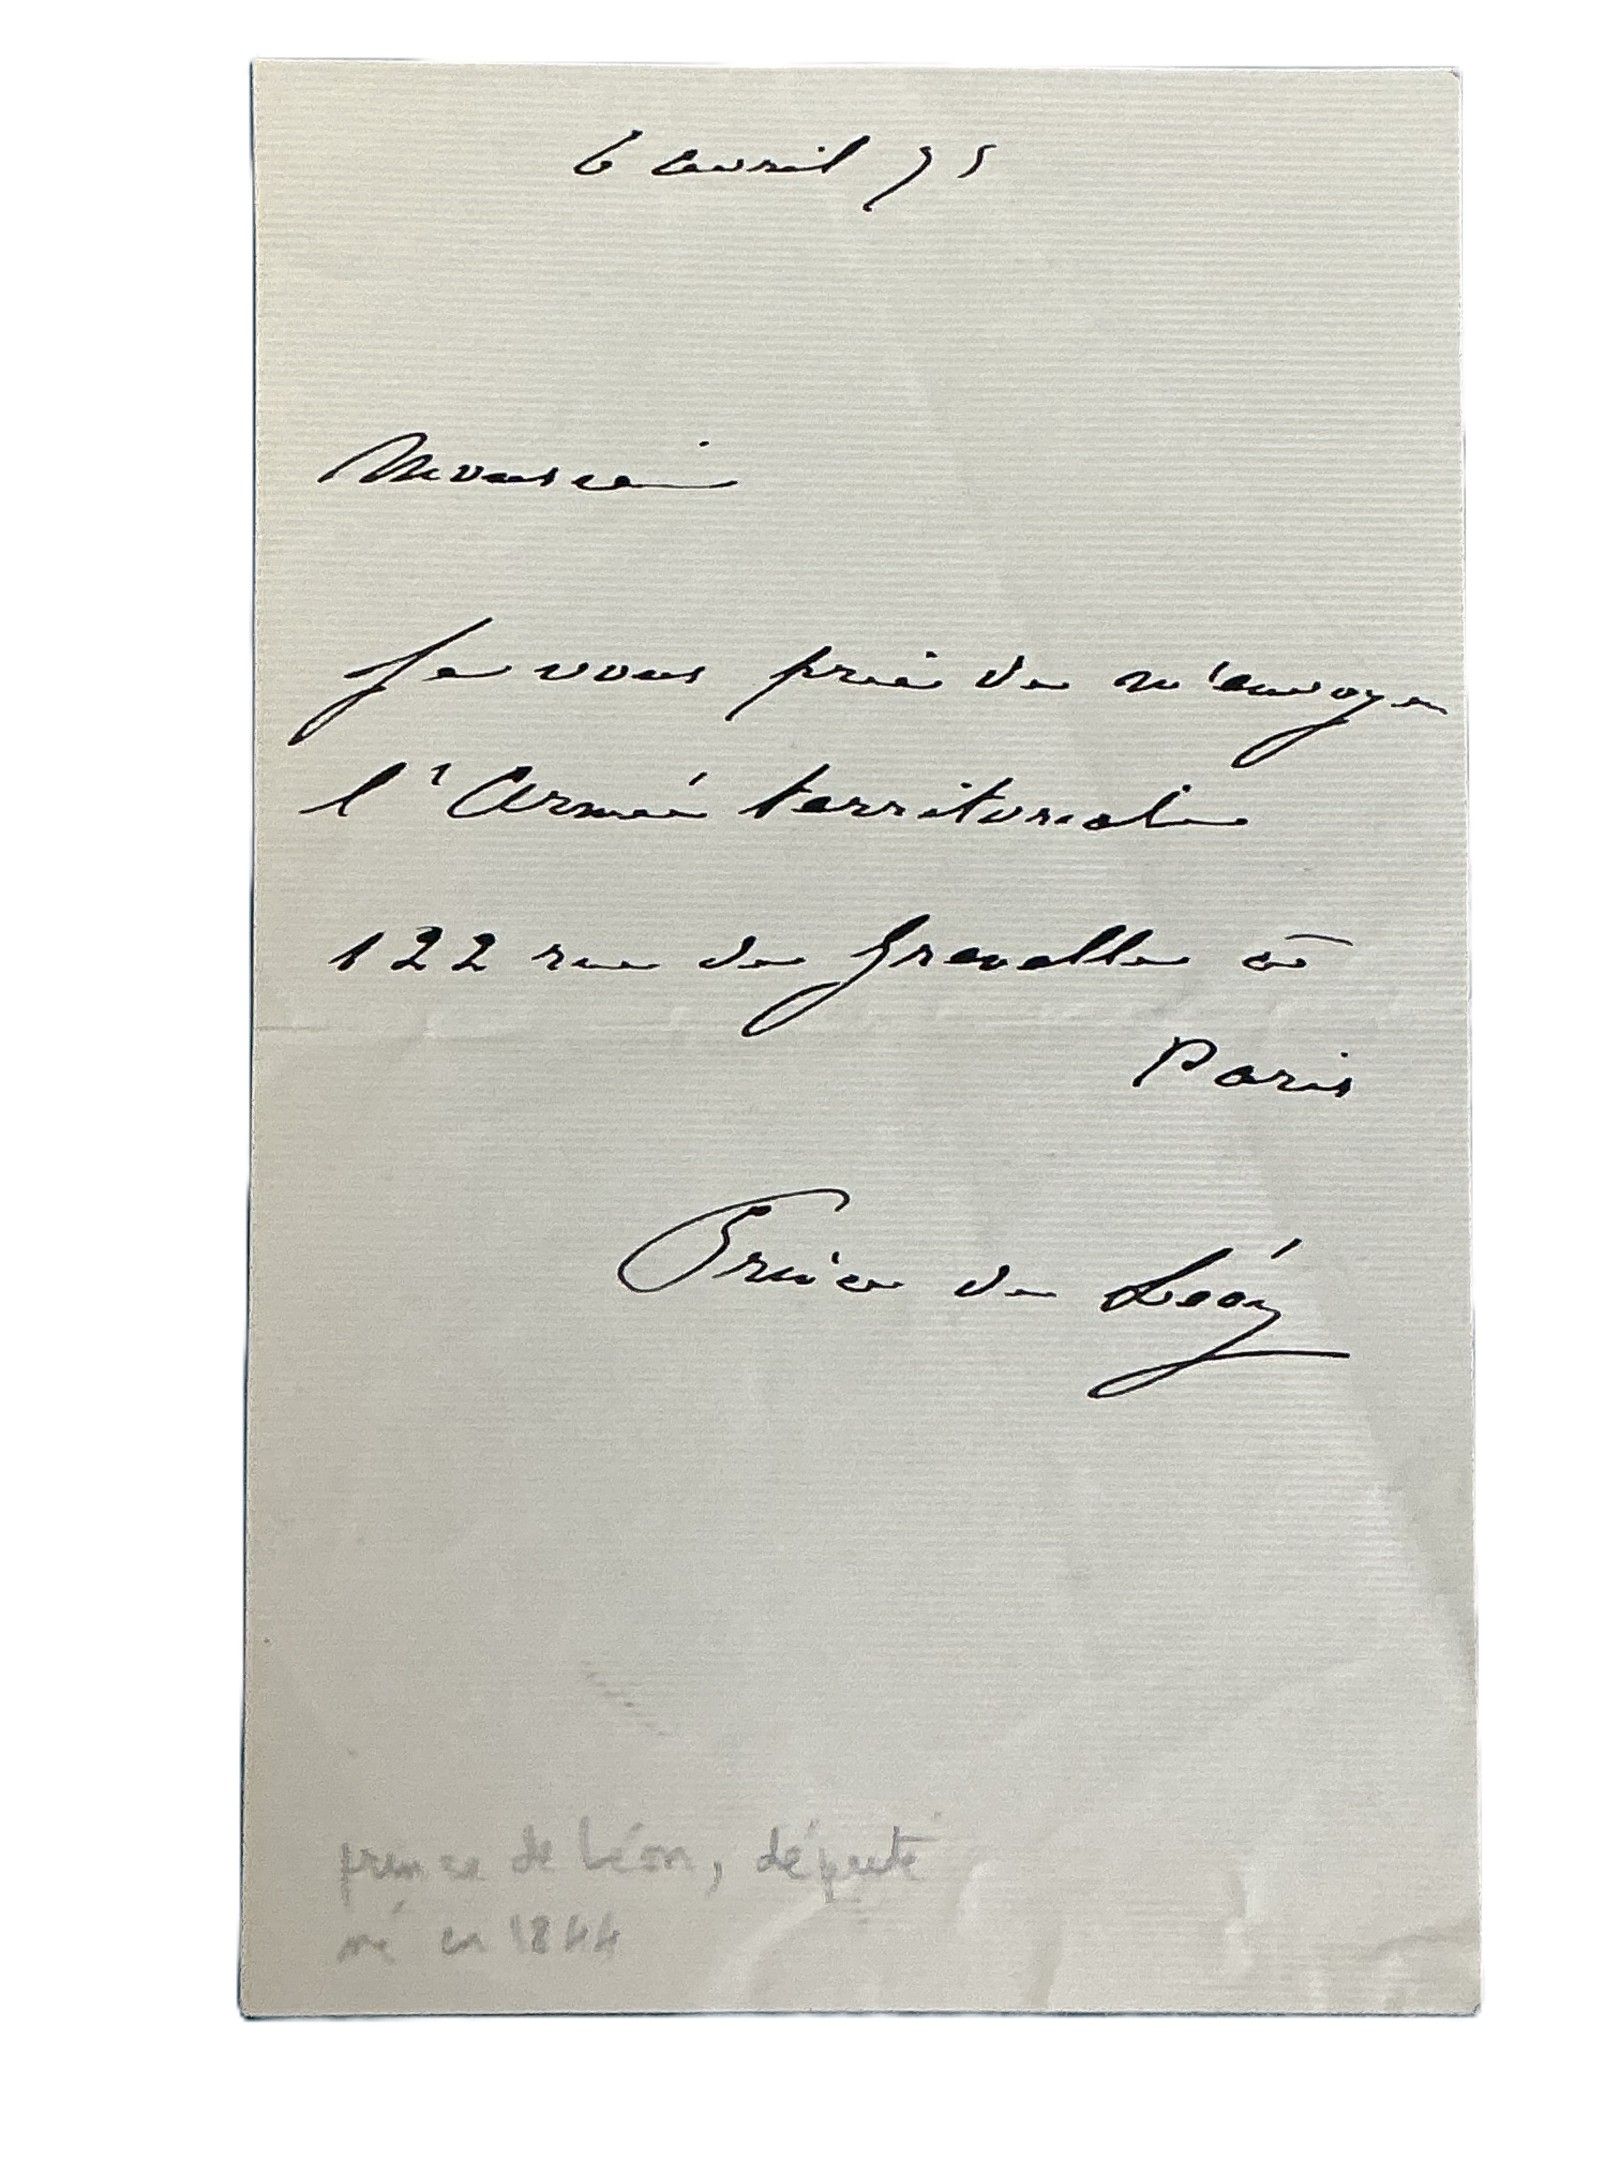 6 avril 75
Monsieur
Je vous prie de m'envoyer
l'Armée territoriale
122 rue de Grenelle à
Paris
Prince de Léon
prince de Léon, député
né en 1844